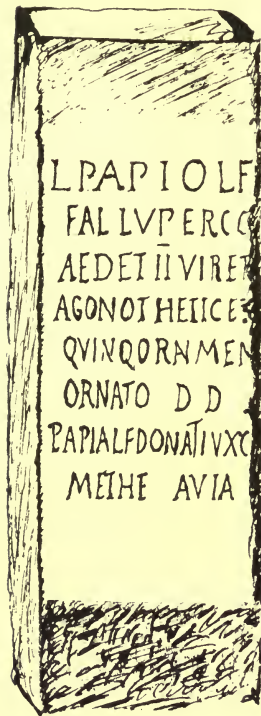 L PAPIO L F
FAL LVPERCO
AED ET IIVIR ET
AGONOTHETICET
QVINQ ORNMEN
ORNATO D D
PAPIA L F DONATI VXO
METHE AVIA